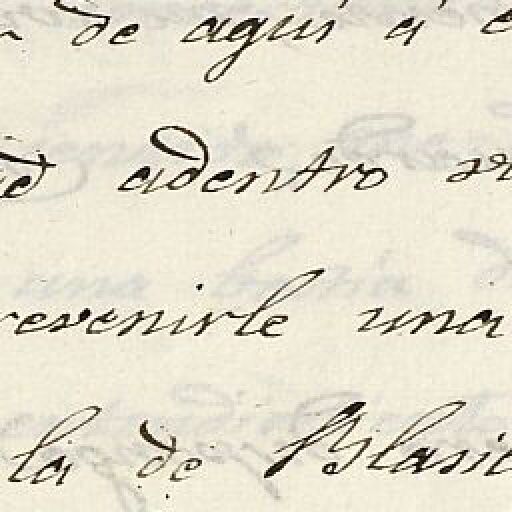 de aqui á
adentro
revenirle una
la de Blasi